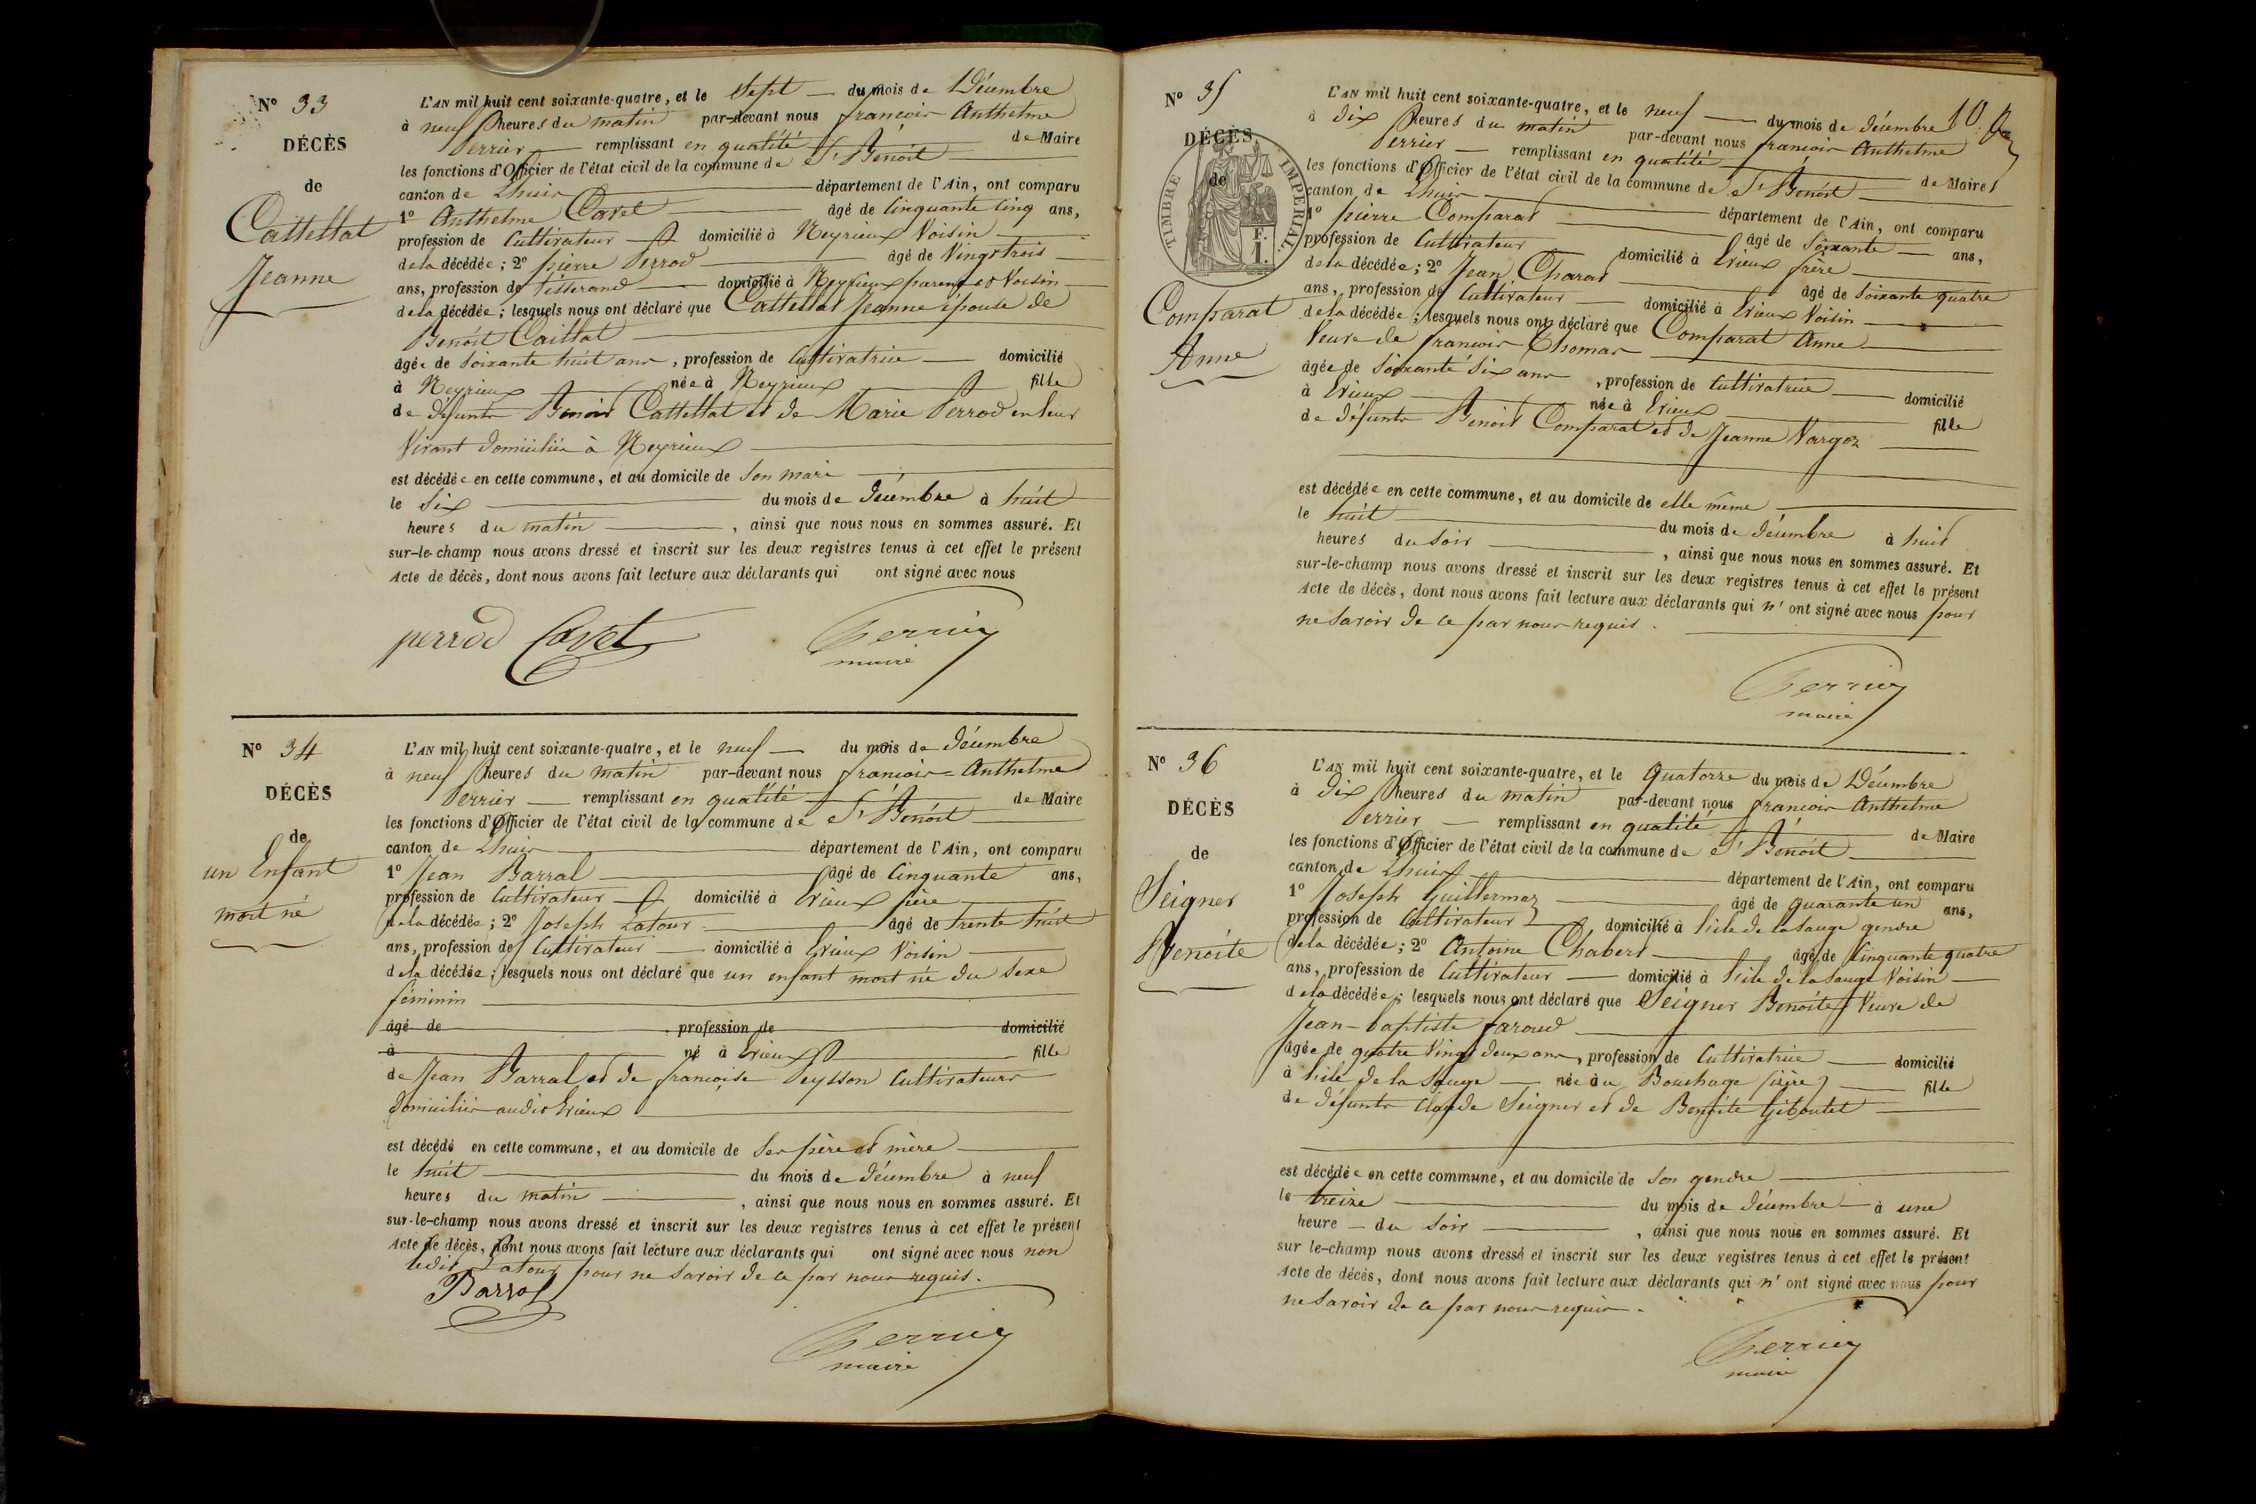 N° 33
DÉCÈS
de
Cattellat
Jeanne
L'AN mil huit cent soixante-quatre, et le Sept du mois de Décembre
à neuf heures du matin par-devant nous françois Anthelme
Perrier remplissant en qualité de Maire
les fonctions d'Officier de l'état civil de la commune de St Benoît
canton de Lhuis département de l'Ain, ont comparu
1° Anthelme Cavet âgé de Cinquante Cinq ans,
profession de Cultivateur domicilié à Neyrieux Voisin
de la décédée; 2° pierre Perrod âgé de Vingt trois
ans, profession de tisserand domicilié à Neyrieux parent et Voisin
de la décédée; lesquels nous ont déclaré que Cattellat Jeanne épouse de
Benoît Caillat
âgée de Soixante huit ans, profession de Cultivatrice domicilié
à Neyrieux née à Neyrieux fille
de défunts Benoit Cattellat et de Marie Perrod en leur
Vivant domiciliés à Neyrieux
est décédée en cette commune, et au domicile de Son mari
le Six du mois de Décembre à huit
heures du matin, ainsi que nous nous en sommes assuré. Et
sur-le-champ nous avons dressé et inscrit sur les deux registres tenus à cet effet le présent
Acte de décès, dont nous avons fait lecture aux déclarants qui ont signé avec nous
perrod Cavet Perrier
maire
N° 34
DÉCÈS
de
un Enfant
mort né
L'AN mil huit cent soixante-quatre, et le neuf du mois de Décembre
à neuf heures du matin par-devant nous françois-Anthelme
Perrier remplissant en qualité de Maire
les fonctions d'Officier de l'état civil de la commune de St Benoît
canton de Lhuis département de l'Ain, ont comparu
1° Jean Barral âgé de Cinquante ans,
profession de Cultivateur domicilié à Erieux père
de la décédée; 2° Joseph Latour âgé de trente huit
ans, profession de Cultivateur domicilié à Erieux Voisin
de la décédée; lesquels nous ont déclaré que un enfant mort né du Sexe
féminin
âgé de profession de domicilié
à né à Erieux fille
de Jean Barral et de françoise Peysson Cultivateurs
domiciliés audit Erieux
est décédé en cette commune, et au domicile de Ses père et mère
le huit du mois de Décembre à neuf
heures du matin, ainsi que nous nous en sommes assuré. Et
sur-le-champ nous avons dressé et inscrit sur les deux registres tenus à cet effet le présent
Acte de décès, dont nous avons fait lecture aux déclarants qui ont signé avec nous non
ledit Latour pour ne Savoir de ce par nous requis.
Barral
Perrier
maire
N° 35
DÉCÈS
de
TIMBRE IMPERIAL
F. 1.
Comparat
Anne
10
L'AN mil huit cent soixante-quatre, et le neuf du mois de Décembre
à Dix heures du matin par-devant nous françois Anthelme
Perrier remplissant en qualité de Maire
les fonctions d'Officier de l'état civil de la commune de St Benoît
canton de Lhuis département de l'Ain, ont comparu
1° pierre Comparat âgé de Soixante ans,
profession de Cultivateur domicilié à Erieux frère
de la décédée; 2° Jean Charat âgé de Soixante quatre
ans, profession de Cultivateur domicilié à Erieux Voisin
de la décédée; lesquels nous ont déclaré que Comparat Anne
Veuve de françois Thomas
âgée de Soixante Six ans, profession de Cultivatrice domicilié
à Erieux née à Erieux fille
de défunts Benoît Comparat et de Jeanne Vargoz
est décédée en cette commune, et au domicile de elle même
le huit du mois de Décembre à huit
heures du Soir, ainsi que nous nous en sommes assuré. Et
sur-le-champ nous avons dressé et inscrit sur les deux registres tenus à cet effet le présent
Acte de décès, dont nous avons fait lecture aux déclarants qui n'ont signé avec nous pour
ne Savoir de ce par nous requis.
Perrier
maire
N° 36
DÉCÈS
de
Seigner
Benoîte
L'AN mil huit cent soixante-quatre, et le Quatorze du mois de Décembre
à Dix heures du matin par-devant nous françois Anthelme
Perrier remplissant en qualité de Maire
les fonctions d'Officier de l'état civil de la commune de St Benoît
canton de Lhuis département de l'Ain, ont comparu
1° Joseph Guillermaz âgé de quarante un ans,
profession de Cultivateur domicilié à l'isle de la Sauge gendre
de la décédée; 2° Antoine Chabert âgé de Cinquante quatre
ans, profession de Cultivateur domicilié à l'isle de la Sauge Voisin
de la décédée; lesquels nous ont déclaré que Seigner Benoîte Veuve de
Jean-baptiste faroud
âgée de quatre Vingt deux ans, profession de Cultivatrice domicilié
à l'isle de la Sauge née au Bouchage (isère) fille
de défunts Claude Seigner et de Benoîte Giboulet
est décédée en cette commune, et au domicile de Son gendre
le treize du mois de Décembre à une
heure du Soir, ainsi que nous nous en sommes assuré. Et
sur le-champ nous avons dressé et inscrit sur les deux registres tenus à cet effet le présent
Acte de décès, dont nous avons fait lecture aux déclarants qui n'ont signé avec nous pour
ne Savoir de ce par nous requis.
Perrier
maire